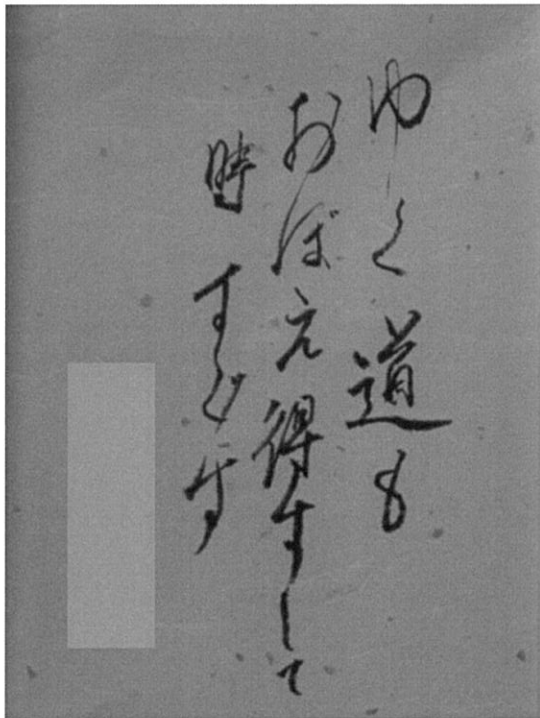 ゆく道も
おぼえ得ずして
時すぐす